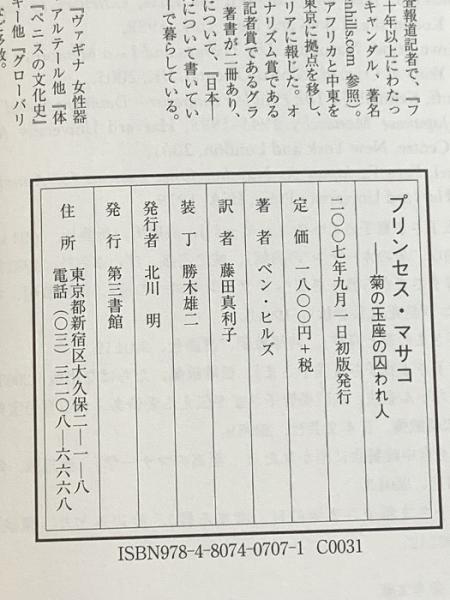 査報道記者で、『フ
十年以上にわたっ
キャンダル・著名
nhills.com 参照)。
アフリカと中東を
東京に拠点を移し、
リアに報じた。オ
ナリズム賞である
記者賞であるグラ
著書が二冊あり、
について、『日本
について書いてい
で暮らしている。
『ヴァギナ 女性器
アルテール他『体
『ペニスの文化史』
キー他『グローバリ
プリンセス・マサコ
――菊の玉座の囚われ人
二〇〇七年九月一日初版発行
定 価 一八〇〇円+税
著 者 ベン・ヒルズ
訳 者 藤田真利子
装 丁 勝木雄二
発行者 北川 明
発 行 第三書館
住 所 東京都新宿区大久保二―一―八
電話(〇三)三二〇八―六六六八
ISBN978-4-8074-0707-1 C0031